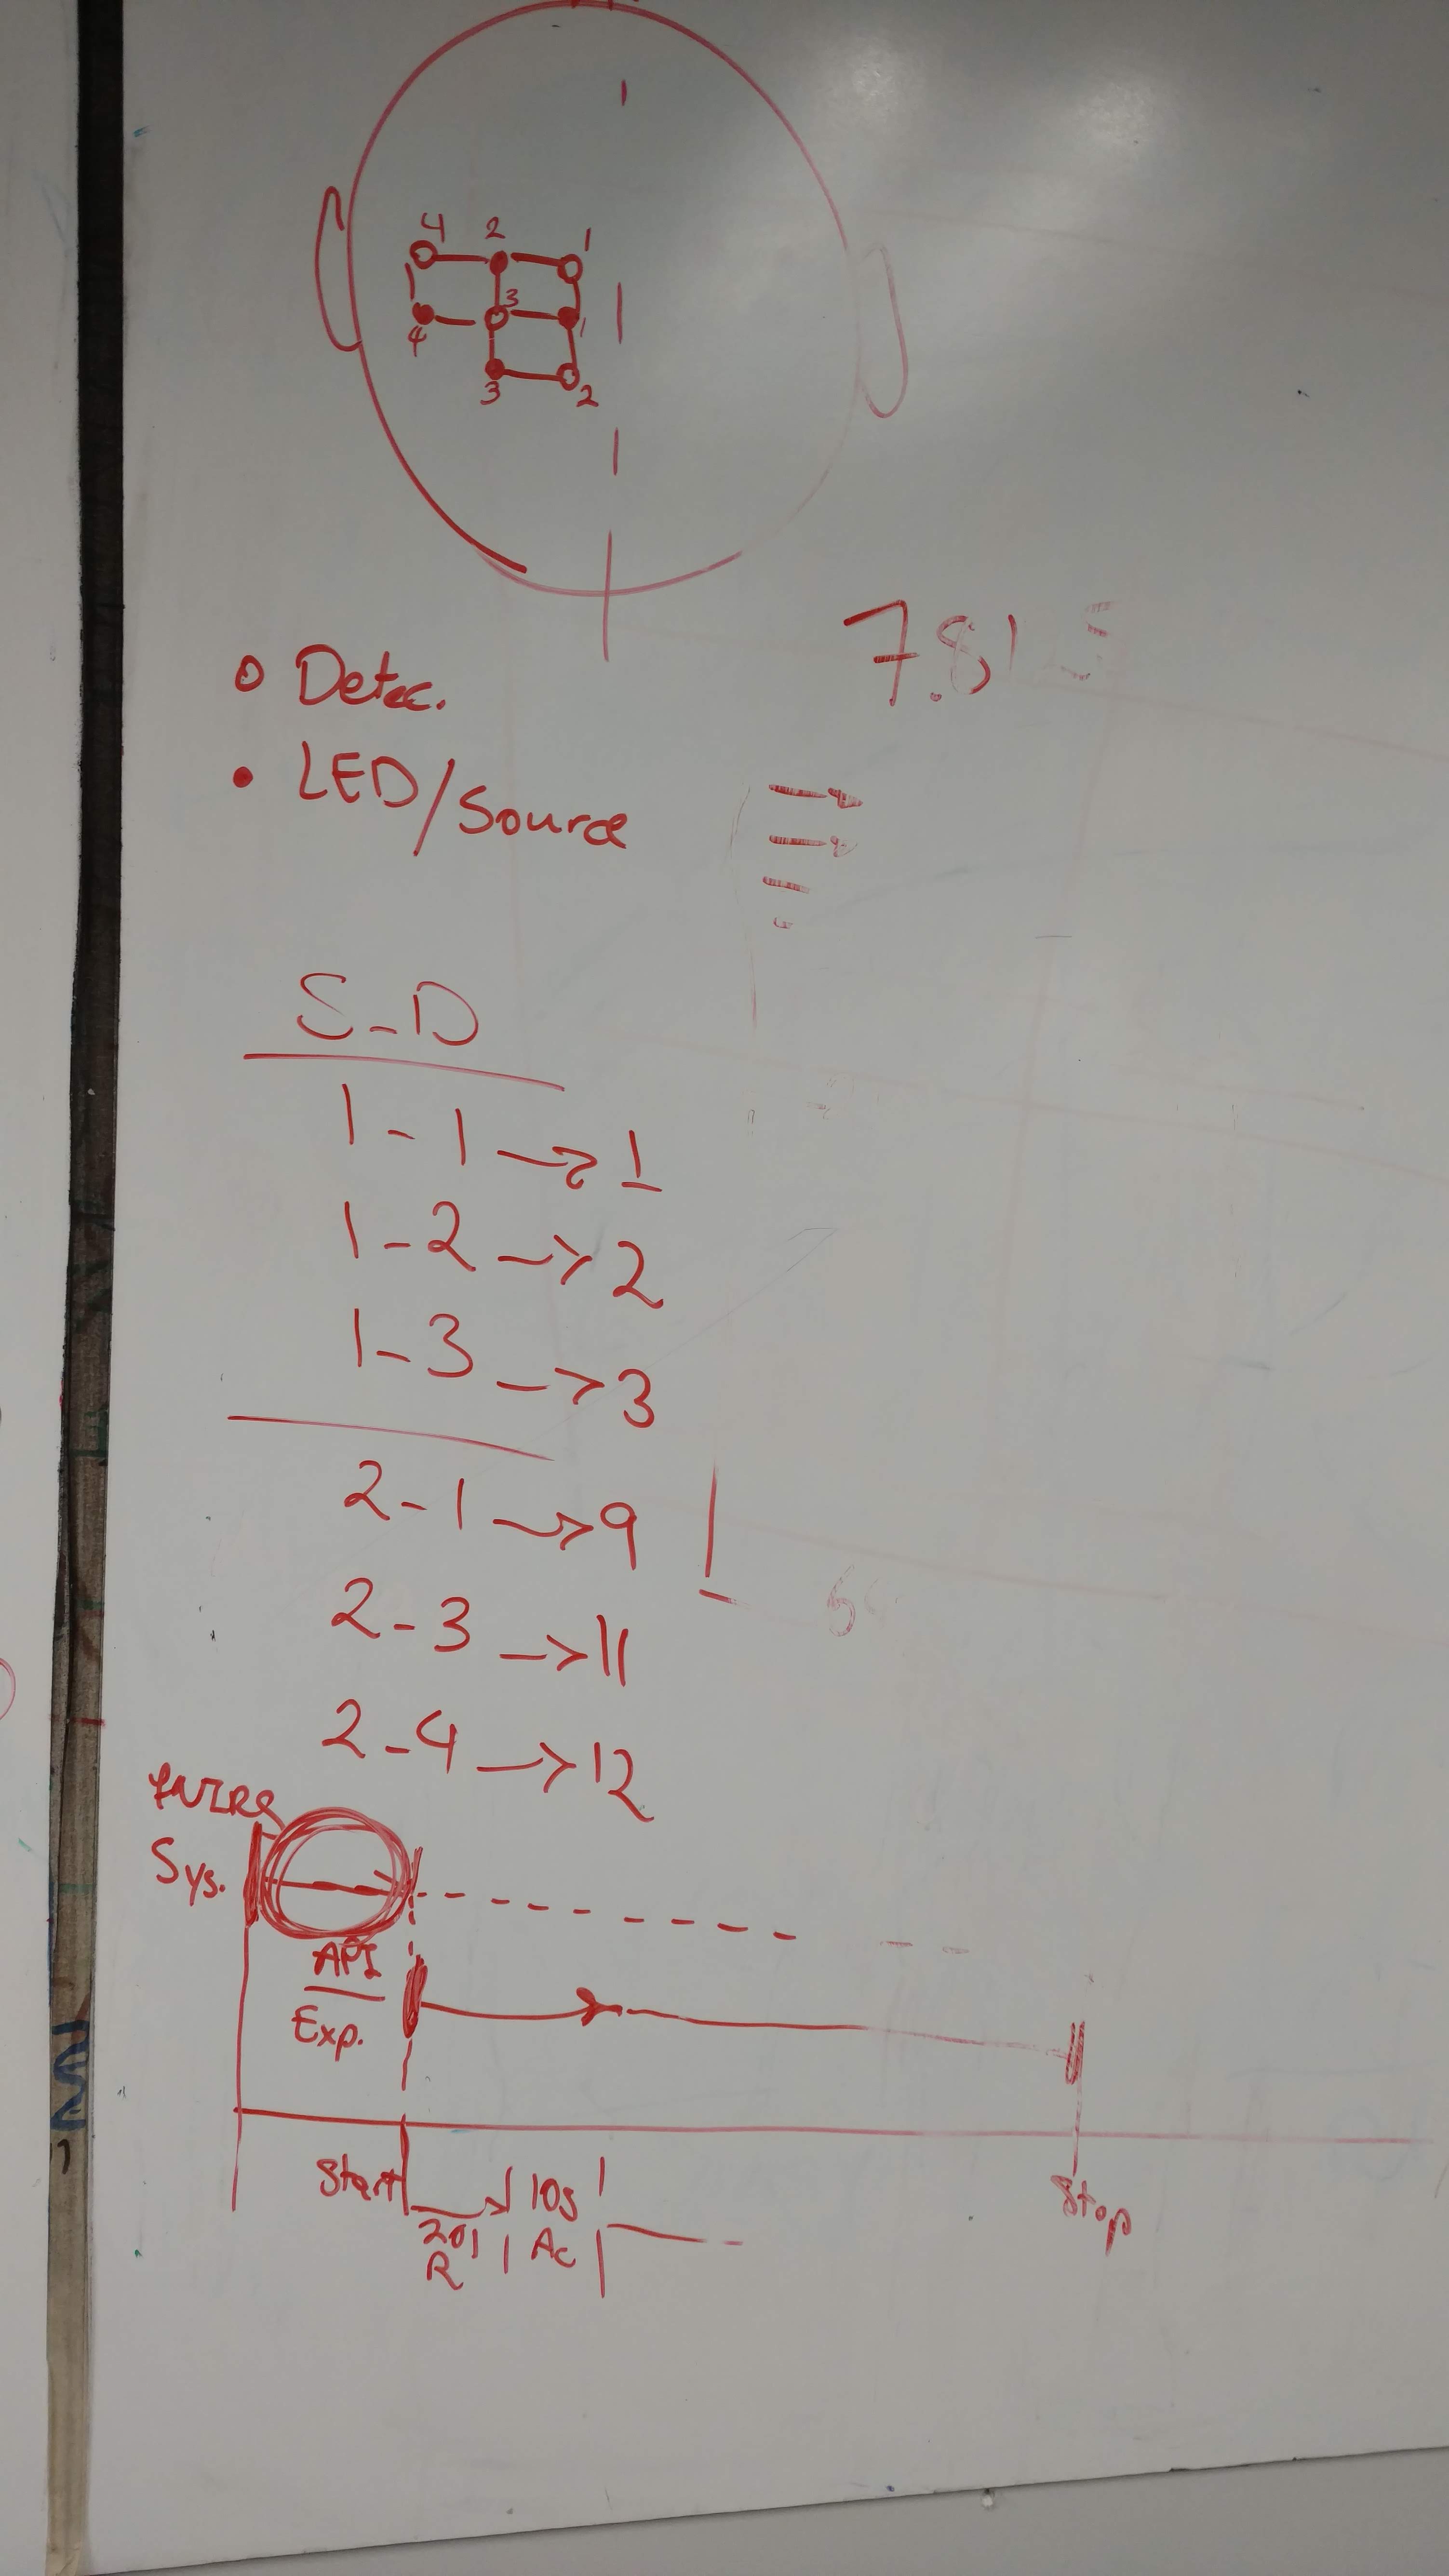 4 2 1
3
4 1
3 2
o Detec.
• LED/Source
7.81
S-D
1-1 → 1
1-2 → 2
1-3 → 3
2-1 → 9
2-3 → 11
2-4 → 12
fNIRS
Sys.
API
Exp.
Start
10s
20
R
Ac
Stop